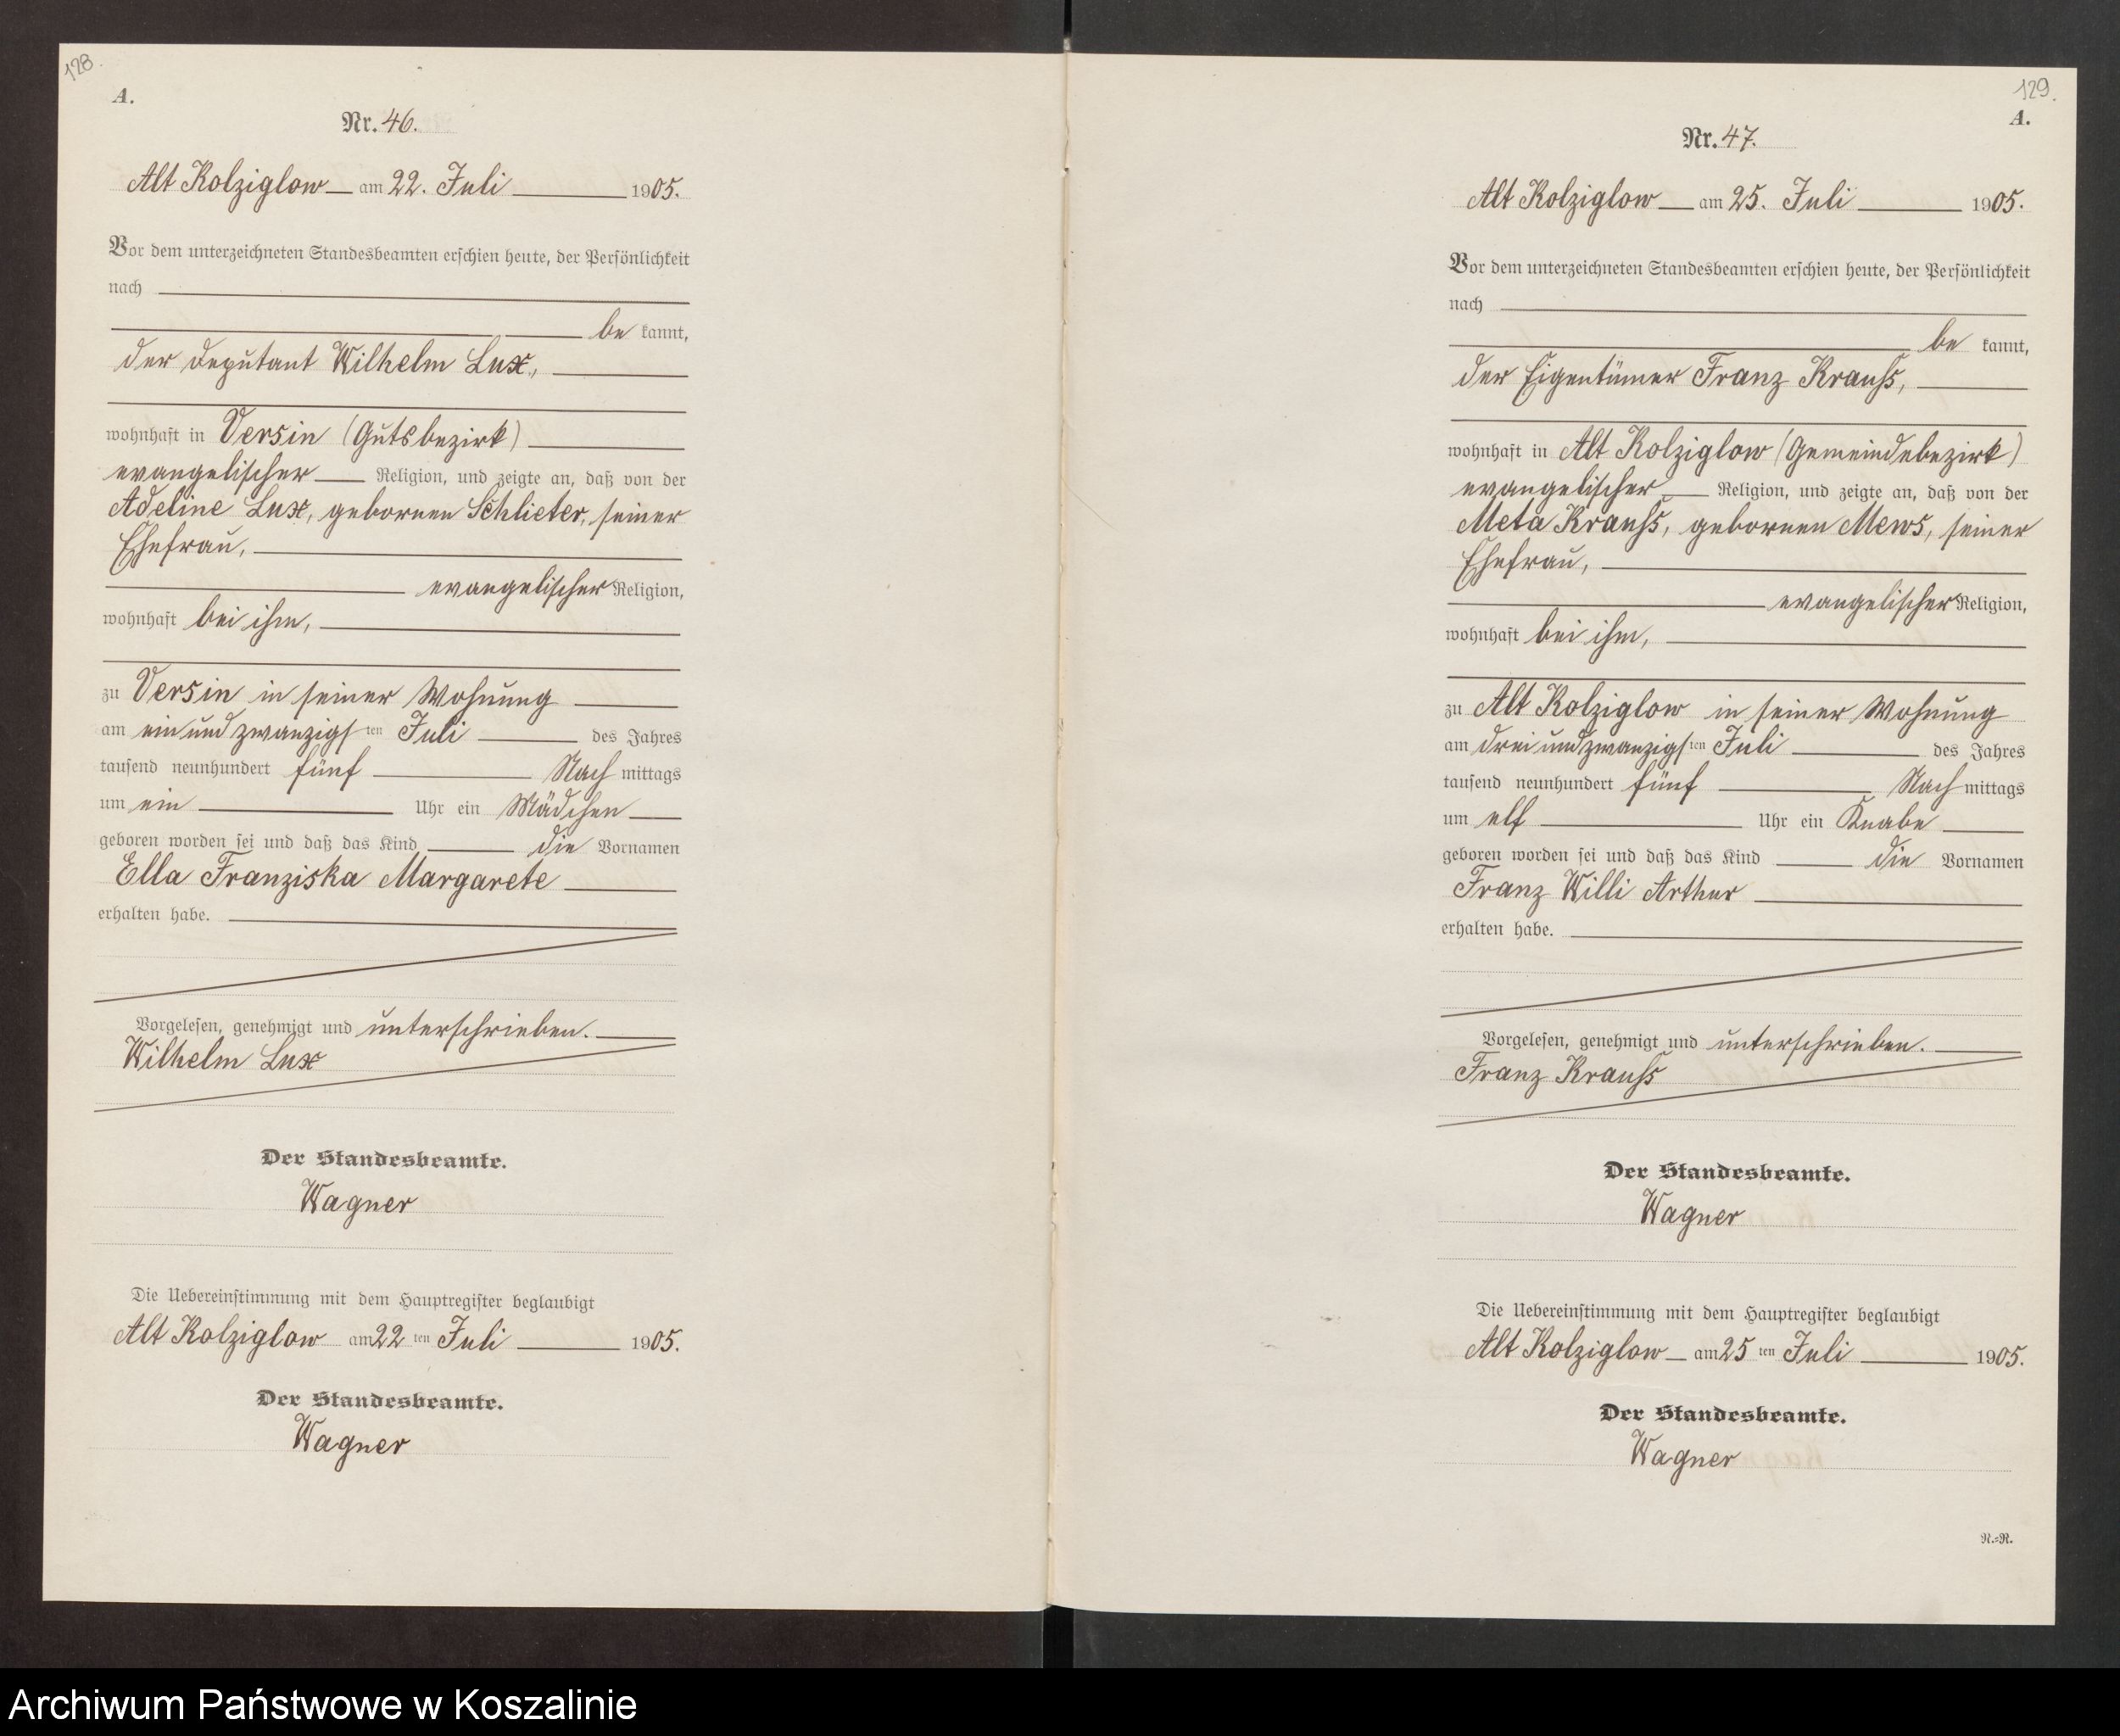 128.
A.
Nr. 46.
Alt Kolziglow am 22. Juli 1905.
Vor dem unterzeichneten Standesbeamten erschien heute, der Persönlichkeit
nach
be kannt,
der Deputant Wilhelm Lux,
wohnhaft in Versin (Gutsbezirk)
evangelischer Religion, und zeigte an, daß von der
Adeline Lux, gebornen Schlieter, seiner
Ehefrau,
evangelischer Religion,
wohnhaft bei ihm,
zu Versin in seiner Wohnung
am ein und zwanzigsten Juli des Jahres
tausend neunhundert fünf Nachmittags
um ein Uhr ein Mädchen
geboren worden sei und daß das Kind die Vornamen
Ella Franziska Margarete
erhalten habe.
Vorgelesen, genehmigt und unterschrieben.
Wilhelm Lux
Der Standesbeamte.
Wagner
Die Uebereinstimmung mit dem Hauptregister beglaubigt
Alt Kolziglow am 22 ten Juli 1905.
Der Standesbeamte.
Wagner
129.
A.
Nr. 47.
Alt Kolziglow am 25. Juli 1905.
Vor dem unterzeichneten Standesbeamten erschien heute, der Persönlichkeit
nach
be kannt,
der Eigentümer Franz Krauß,
wohnhaft in Alt Kolziglow (Gemeindebezirk)
evangelischer Religion, und zeigte an, daß von der
Meta Krauß, gebornen Mews, seiner
Ehefrau,
evangelischer Religion,
wohnhaft bei ihm,
zu Alt Kolziglow in seiner Wohnung
am drei und zwanzigsten Juli des Jahres
tausend neunhundert fünf Nachmittags
um elf Uhr ein Knabe
geboren worden sei und daß das Kind die Vornamen
Franz Willi Arthur
erhalten habe.
Vorgelesen, genehmigt und unterschrieben.
Franz Krauß
Der Standesbeamte.
Wagner
Die Uebereinstimmung mit dem Hauptregister beglaubigt
Alt Kolziglow am 25 ten Juli 1905.
Der Standesbeamte.
Wagner
N.=R.
Archiwum Państwowe w Koszalinie